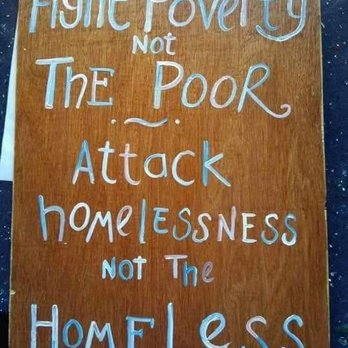 Fight Poverty
Not
The Poor
Attack
homelessness
not The
Homeless